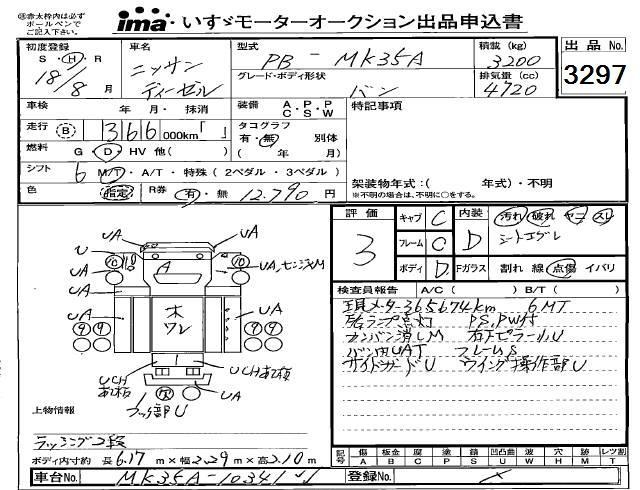 ※赤太枠内は必ず
ボールペンで
ご記入下さい。
ima・いすゞモーターオークション出品申込書
初度登録
S・H・R
18/8月
車名
ニッサン
ディーゼル
型式
PB-MK35A
積載(kg)
3200
グレード・ボディ形状
バン
排気量(cc)
4720
出品No.
3297
車検 年 月・抹消
装備 A.P.P
C S W
特記事項
走行 B 366 000km「 」
タコグラフ
有・無 別体
( 年 月)
燃料 G・D・HV 他( )
シフト 6 M/T・A/T・特殊(2ペダル・3ペダル)
色 指定 R券 有・無 12.790円
架装物年式:( 年式)・不明
※不明の場合は、不明に○をする。
評価
3
キャブ C
フレーム C
ボディ D
内装 D
汚れ 破れ ヤニ スレ
シートエグレ
Fガラス 割れ 線 点傷 イバリ
検査員報告 A/C( ) B/T( )
現メーター365674km 6MT
ランプ点灯 PS,PW付
カンバン消しM 右ドピラーU
バン内UAT フレームS
サイドガードU ウイング操作部U
UA
UA
U
UA
A
UA,センスM
UA
木
ワレ
UA
UCH
UCH
UA
フック部U
上物情報
ラッシング2段
ボディ内寸約 長6.17m×巾2.29m×高2.10m
記号 傷 A 板金 B 腐 C 塗 P 錆 S 凹凸曲 U 波 W 穴 H 跡 X 減 M レツ割 T
車台No. MK35A-10341
登録No.